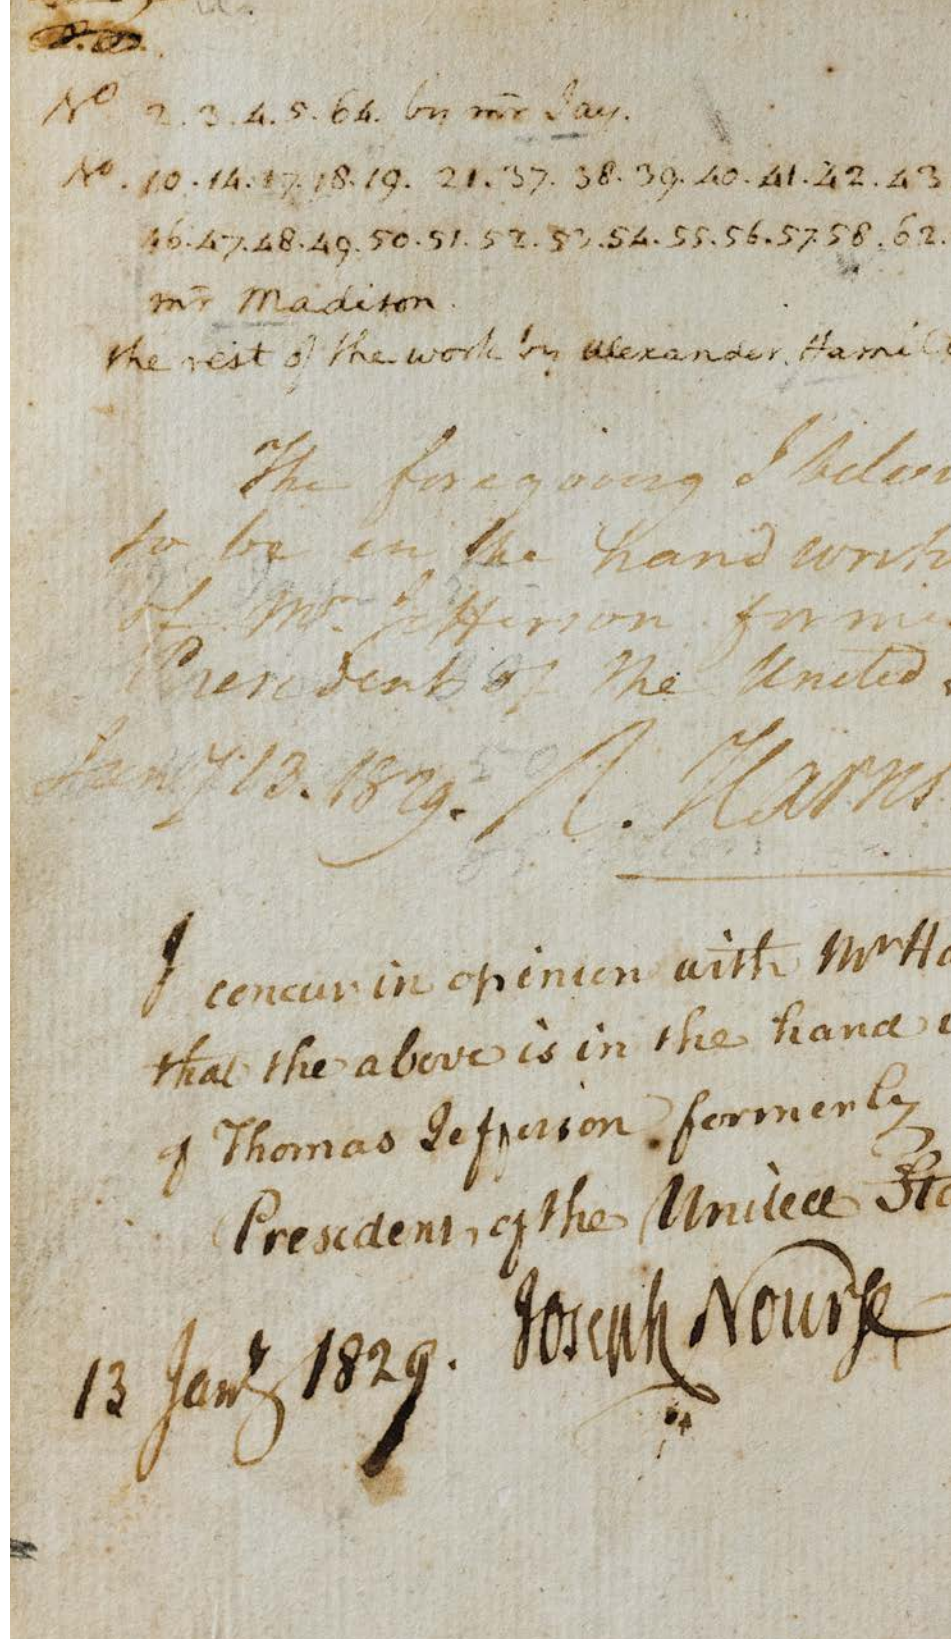 No 2.3.4.5.64. by mr Jay.
No. 10.14.17.18.19. 21.37. 38.39.40.41.42.43
46.47.48.49.50.51.52.53.54.55.56.57.58.62.
mr Madison.
the rest of the work by Alexander Hamil
The foregoing I belie
to be in the hand writi
of Mr. Jefferson form
President of the United
Jany 13. 1829. R. Harris
I concur in opinion with Mr Ha
that the above is in the hand
of Thomas Jefferson formerly
President, of the United Sta
13 Jany 1829. Joseph Nourse